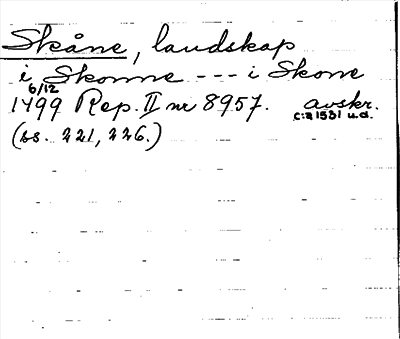 Skåne, landskap
i Skonne --- i Skone
1499 6/12 Rep. II nr 8957. avskr.
c:a 1531 u.d.
(ss. 221, 226.)